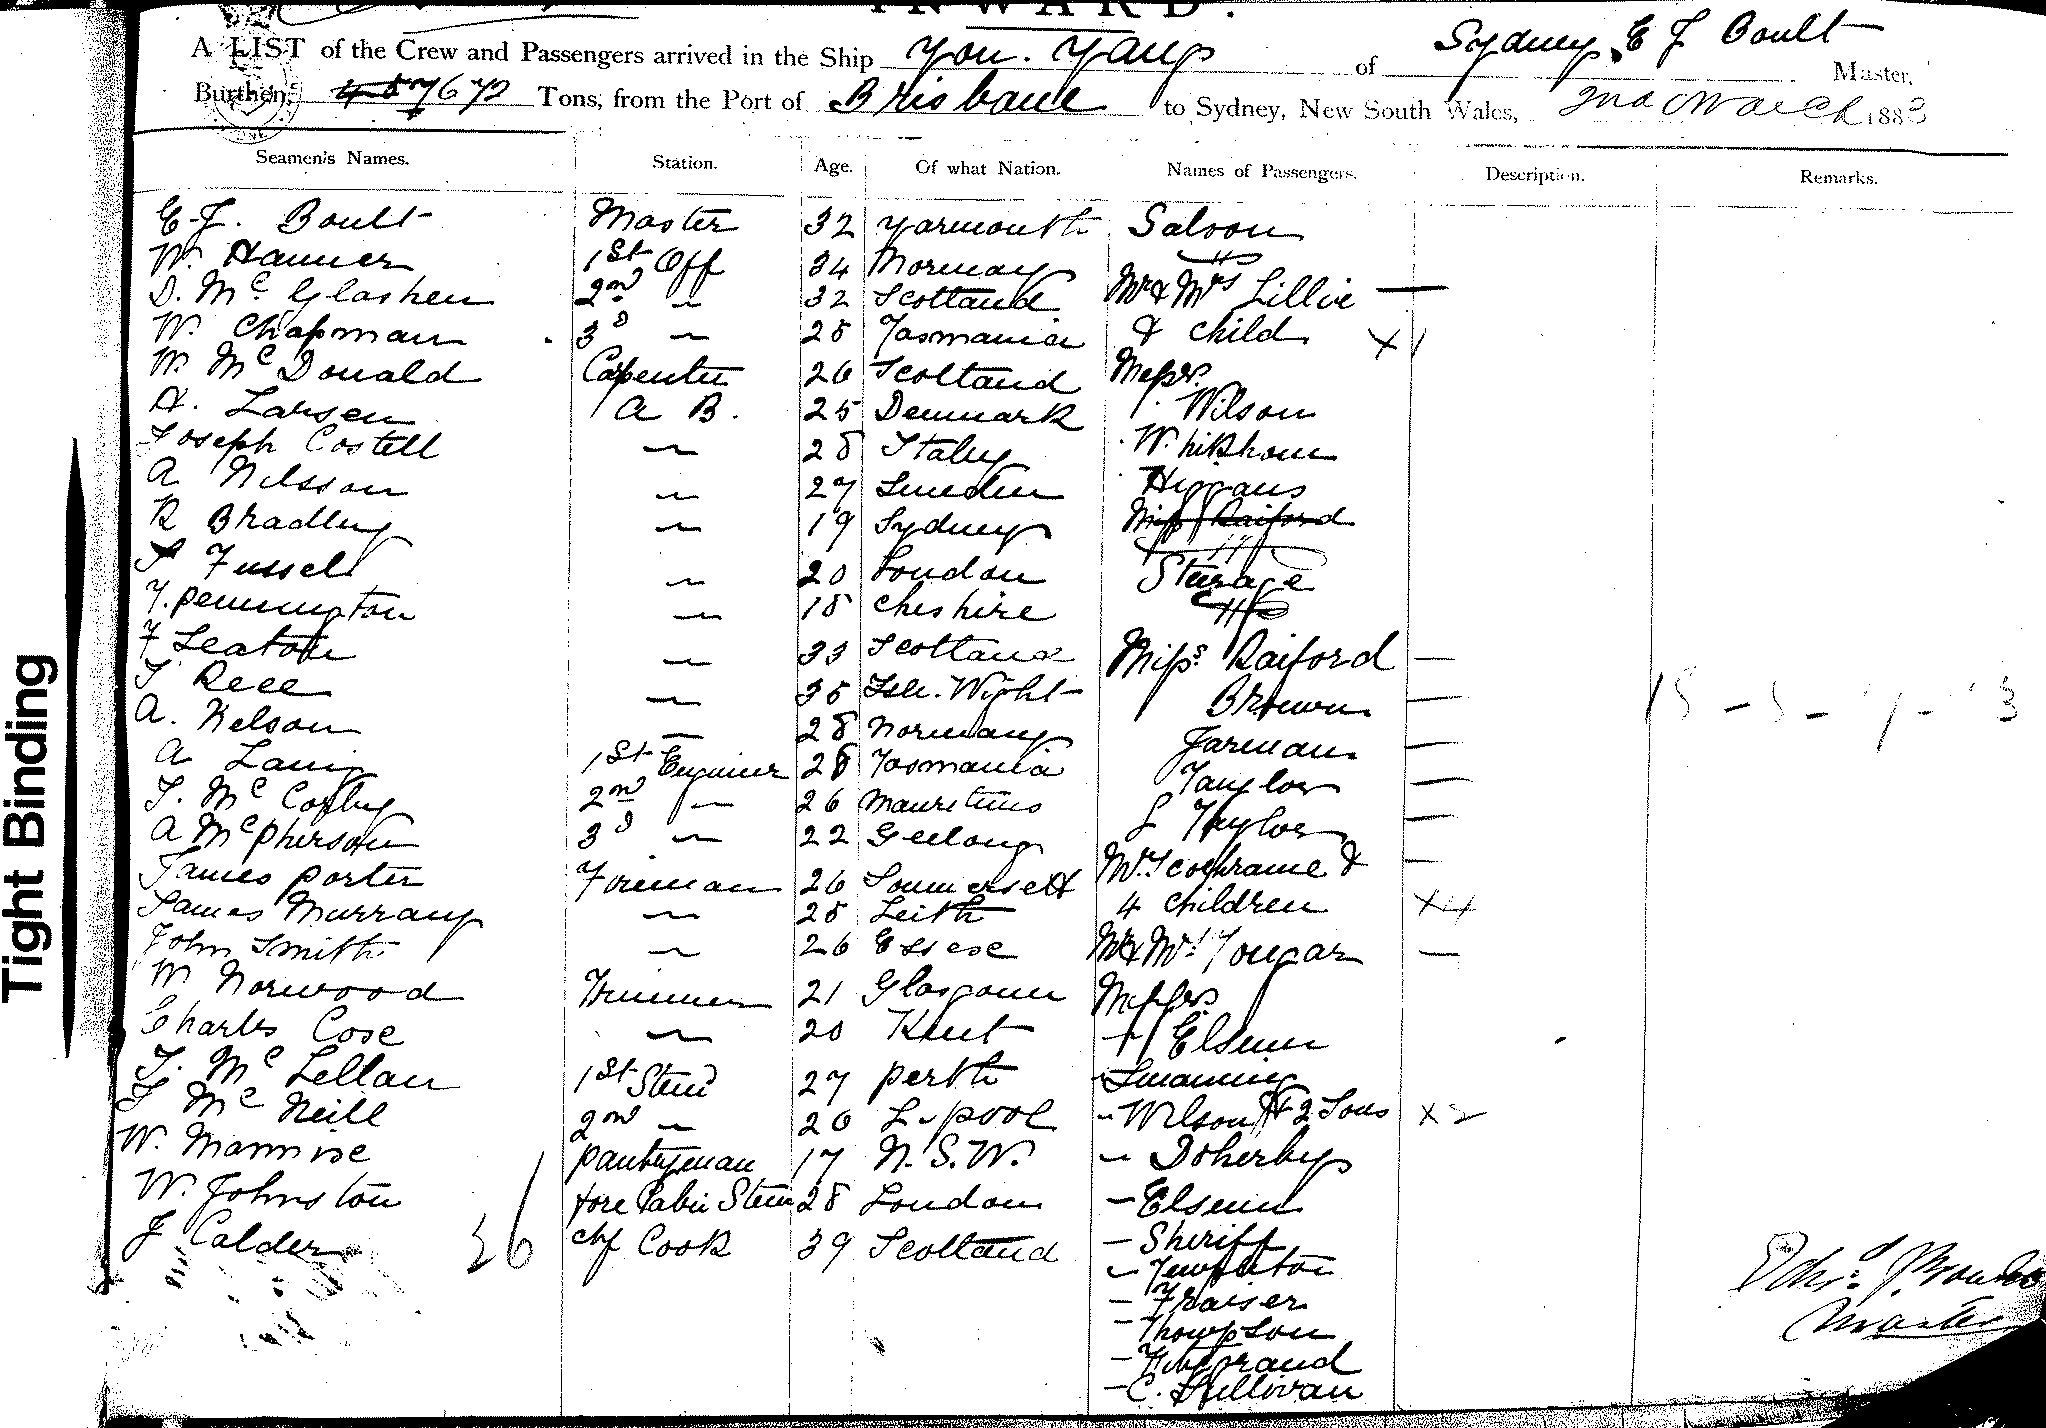 INWARD.
A LIST of the Crew and Passengers arrived in the Ship You. Yangs of Sydney, E J Boult Master,
Burthen, 457 672 Tons, from the Port of Brisbane to Sydney, New South Wales, 2nd March 1883
Seamen's Names. Station. Age. Of what Nation. Names of Passengers. Description. Remarks.
E. J. Boult Master 32 Yarmouth Saloon
W. Hanner 1st Off 34 Norway
D. Mc Glashen 2nd " 32 Scotland Mr & Mrs Lillie —
W. Chapman 3d " 28 Tasmania & child X1
W. McDonald Carpenter 26 Scotland Messrs.
A. Larsen A B. 25 Denmark Wilson
Joseph Costell " 28 Italy
A Nilsson " 27 Sweden Higgans
R Bradley " 19 Sydney Miss Raiford
Fussel " 20 London Steerage
T. Pennington " 18 Cheshire
F Seaton " 33 Scotland Miss Raiford —
J Reee " 35 Isle. Wight Brown —
A. Nelson " 28 Norway Jarman —
A Laing 1st Engineer 28 Tasmania Taylor —
J. Mc Corby 2nd " 26 Mauritius L Taylor —
A McPherson 3d " 22 Geelong Mrs Cochrame & —
James Porter Foreman 26 Sommersett 4 children X4
James Murray " 28 Leith Mr & Mrs Tougar —
John Smith " 26 Essex Messrs
W Norwood Trimmer 21 Glasgow " Elsenn
Charles Cose " 20 Kent
J. Mc Lellan 1st Stewd 27 Perth " Swanning
J Mc Neill 2nd " 20 L.pool " Wilson & 2 Sons X2
W. Mannise Pantryman 17 N. S. W. " Doherby
W. Johnston Fore Cabin Stew 28 London " Elsenn
J Calder Chf Cook 39 Scotland " Sheriff
26
" Templeton
" Fraiser
" Thompson
" C. Sullivan
Master
Tight Binding